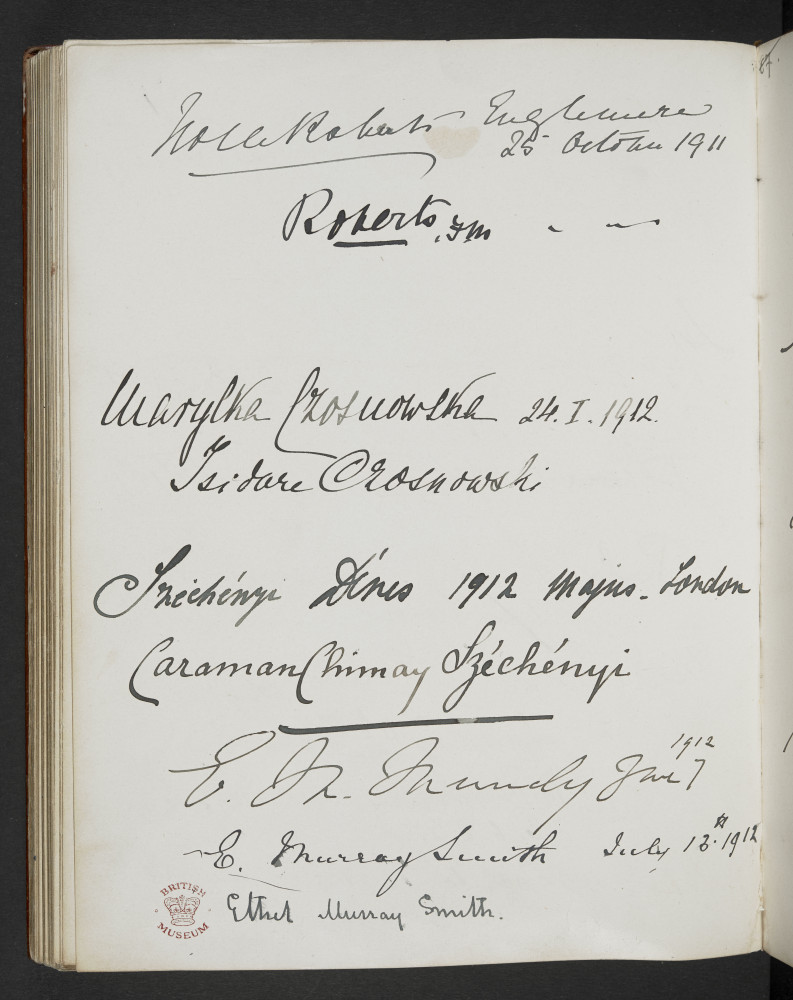 Nora Roberts Englemere
25 October 1911
Roberts, FM " "
Marylka Czosnowska 24. I. 1912.
Isidore Czosnowski
Széchényi Dénes 1912 Majus. London
Caraman Chimay Széchényi
E. M. Mundy June 7 1912
E. Murray Smith July 13th 1912
BRITISH MUSEUM
Ethel Murray Smith.
87.